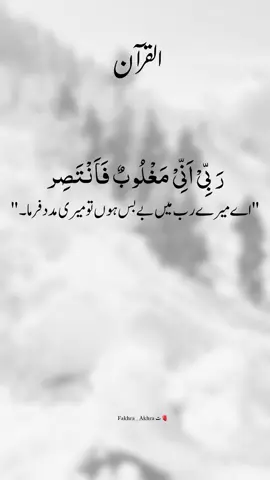 القرآن
رَبِّیْ اَنِّیْ مَغْلُوبٌ فَاَنْتَصِر
"اے میرے رب میں بے بس ہوں تو میری مدد فرما۔"
Fakhra . Akhra ت